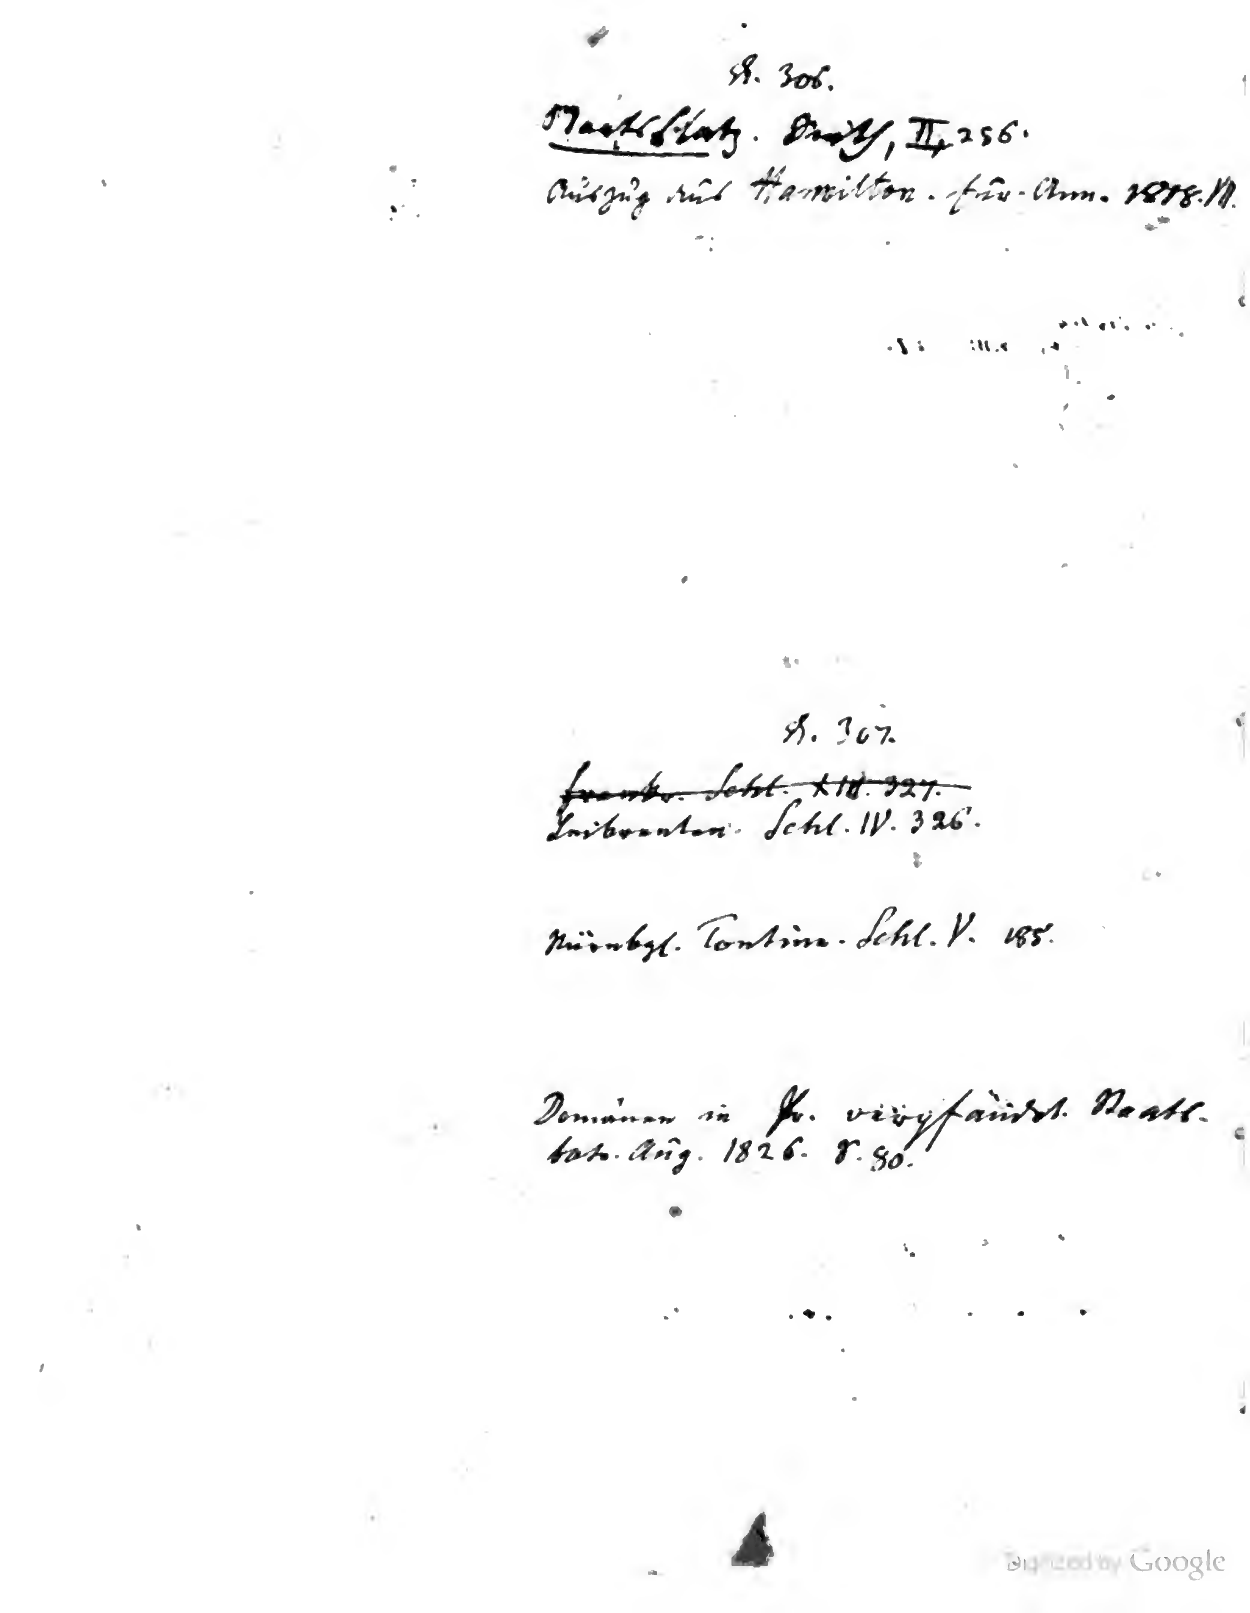 S. 306.
Staatsschatz. Smith, II, 256.
Auszug aus Hamilton. für Anm. 1818. VII.
S. 307.
Frankr. Schl. XIII. 327.
Leibrenten. Schl. IV. 326.
Nürnbgl. Tontine. Schl. V. 185.
Domänen in Pr. verpfändet. Staats-
Aug. 1826. S. 80.
Digitized by Google